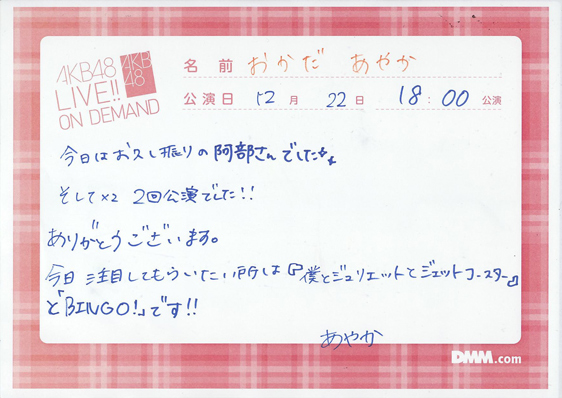 AKB48
LIVE!!
ON DEMAND
AKB
48
名前 おかだ あやか
公演日 12月 22日 18:00 公演
今日はお久し振りの阿部さんでした
そして×2 2回公演でした!!
ありがとうございます。
今日注目してもらいたい所は『僕とジュリエットとジェットコースター』
と「BINGO!」です!!
あやか
DMM.com